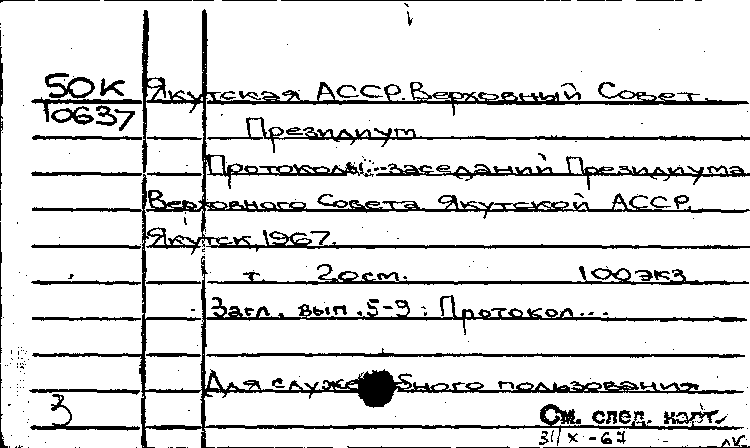 50К Якутская АССР. Верховный Совет.
10637
Президиум
Протоколы заседаний Президиума
Верховного Совета Якутской АССР.
Якутск, 1967.
т. 20см. 100экз
Загл. вып. 5-9: Протокол...
Для служебного пользования
3
См. след. карт.
31/X-67